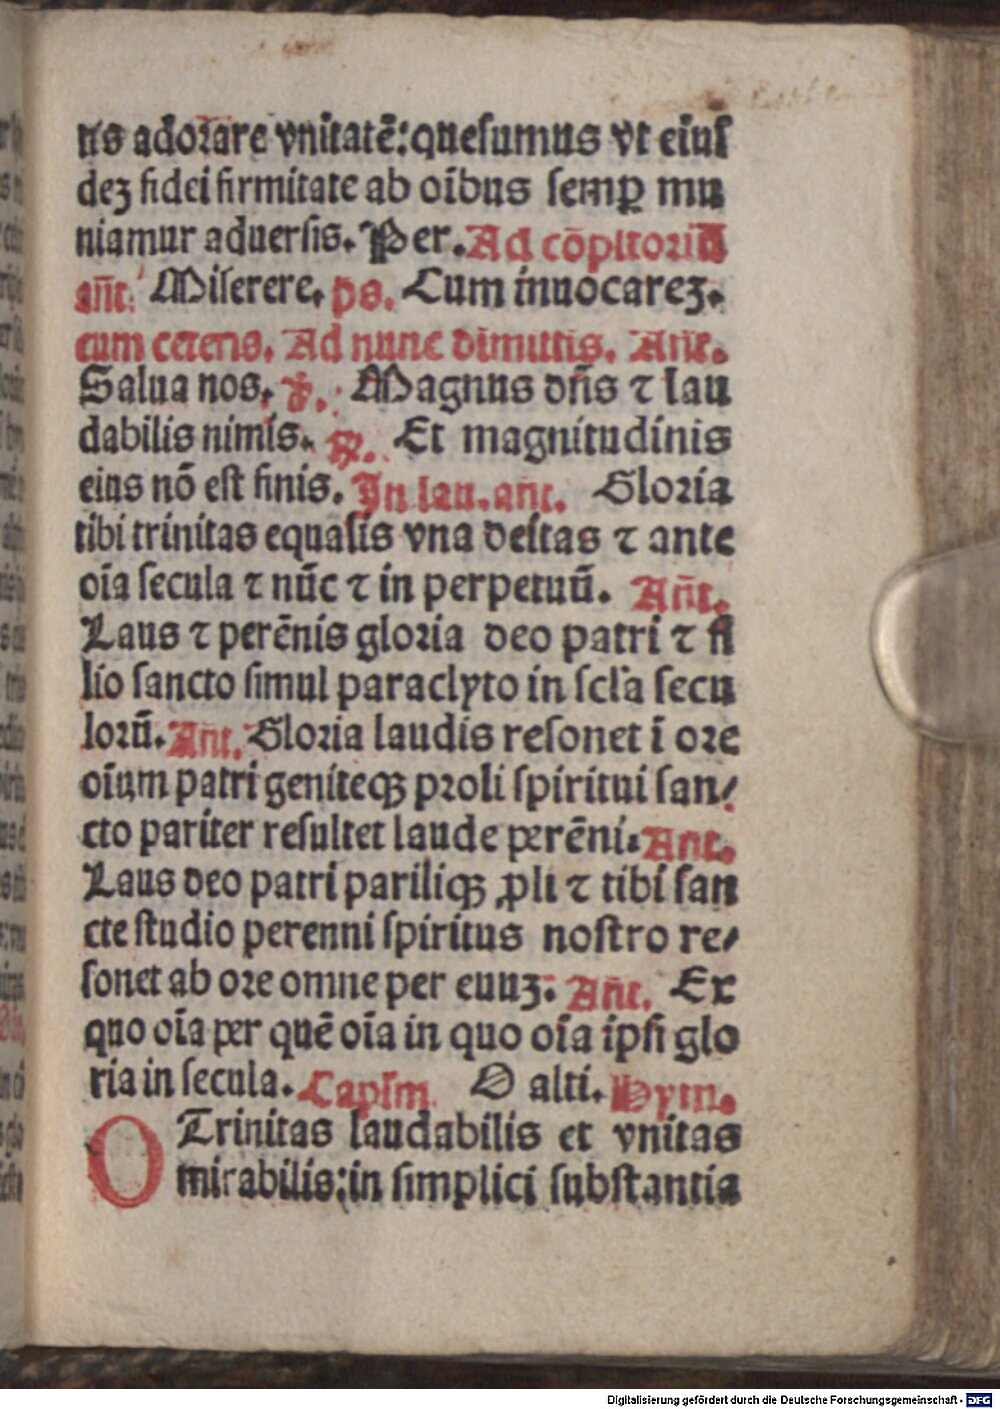 tis adorare vnitatē: quesumus vt eiuſ
dez fidei firmitate ab oībus semꝑ mu
niamur aduersis. Per. Ad cōpltoriū
añt. Miserere. ps. Cum inuocarez.
cum ceteris. Ad nunc dimittis. Añt.
Salua nos. ℣. Magnus dñs ⁊ lau
dabilis nimis. ℟. Et magnitudinis
eius nō est finis. In lau. añt. Gloria
tibi trinitas equalis vna deitas ⁊ ante
oīa secula ⁊ nūc ⁊ in perpetuū. Añt.
Laus ⁊ perēnis gloria deo patri ⁊ fi
lio sancto simul paraclyto in scl'a secu
lorū. Añt. Gloria laudis resonet ī ore
oīum patri geniteqꝫ proli spiritui san/
cto pariter resultet laude ꝑerēni. Añt.
Laus deo patri pariliqꝫ ꝓli ⁊ tibi san
cte studio perenni spiritus nostro re/
sonet ab ore omne per euuz. Añt. Ex
quo oīa ꝑer quē oīa in quo oīa ipsi glo
ria in secula. Capľm O alti. Hym.
O Trinitas laudabilis et vnitas
mirabilis: in simplici substantia
Digitalisierung gefördert durch die Deutsche Forschungsgemeinschaft - DFG